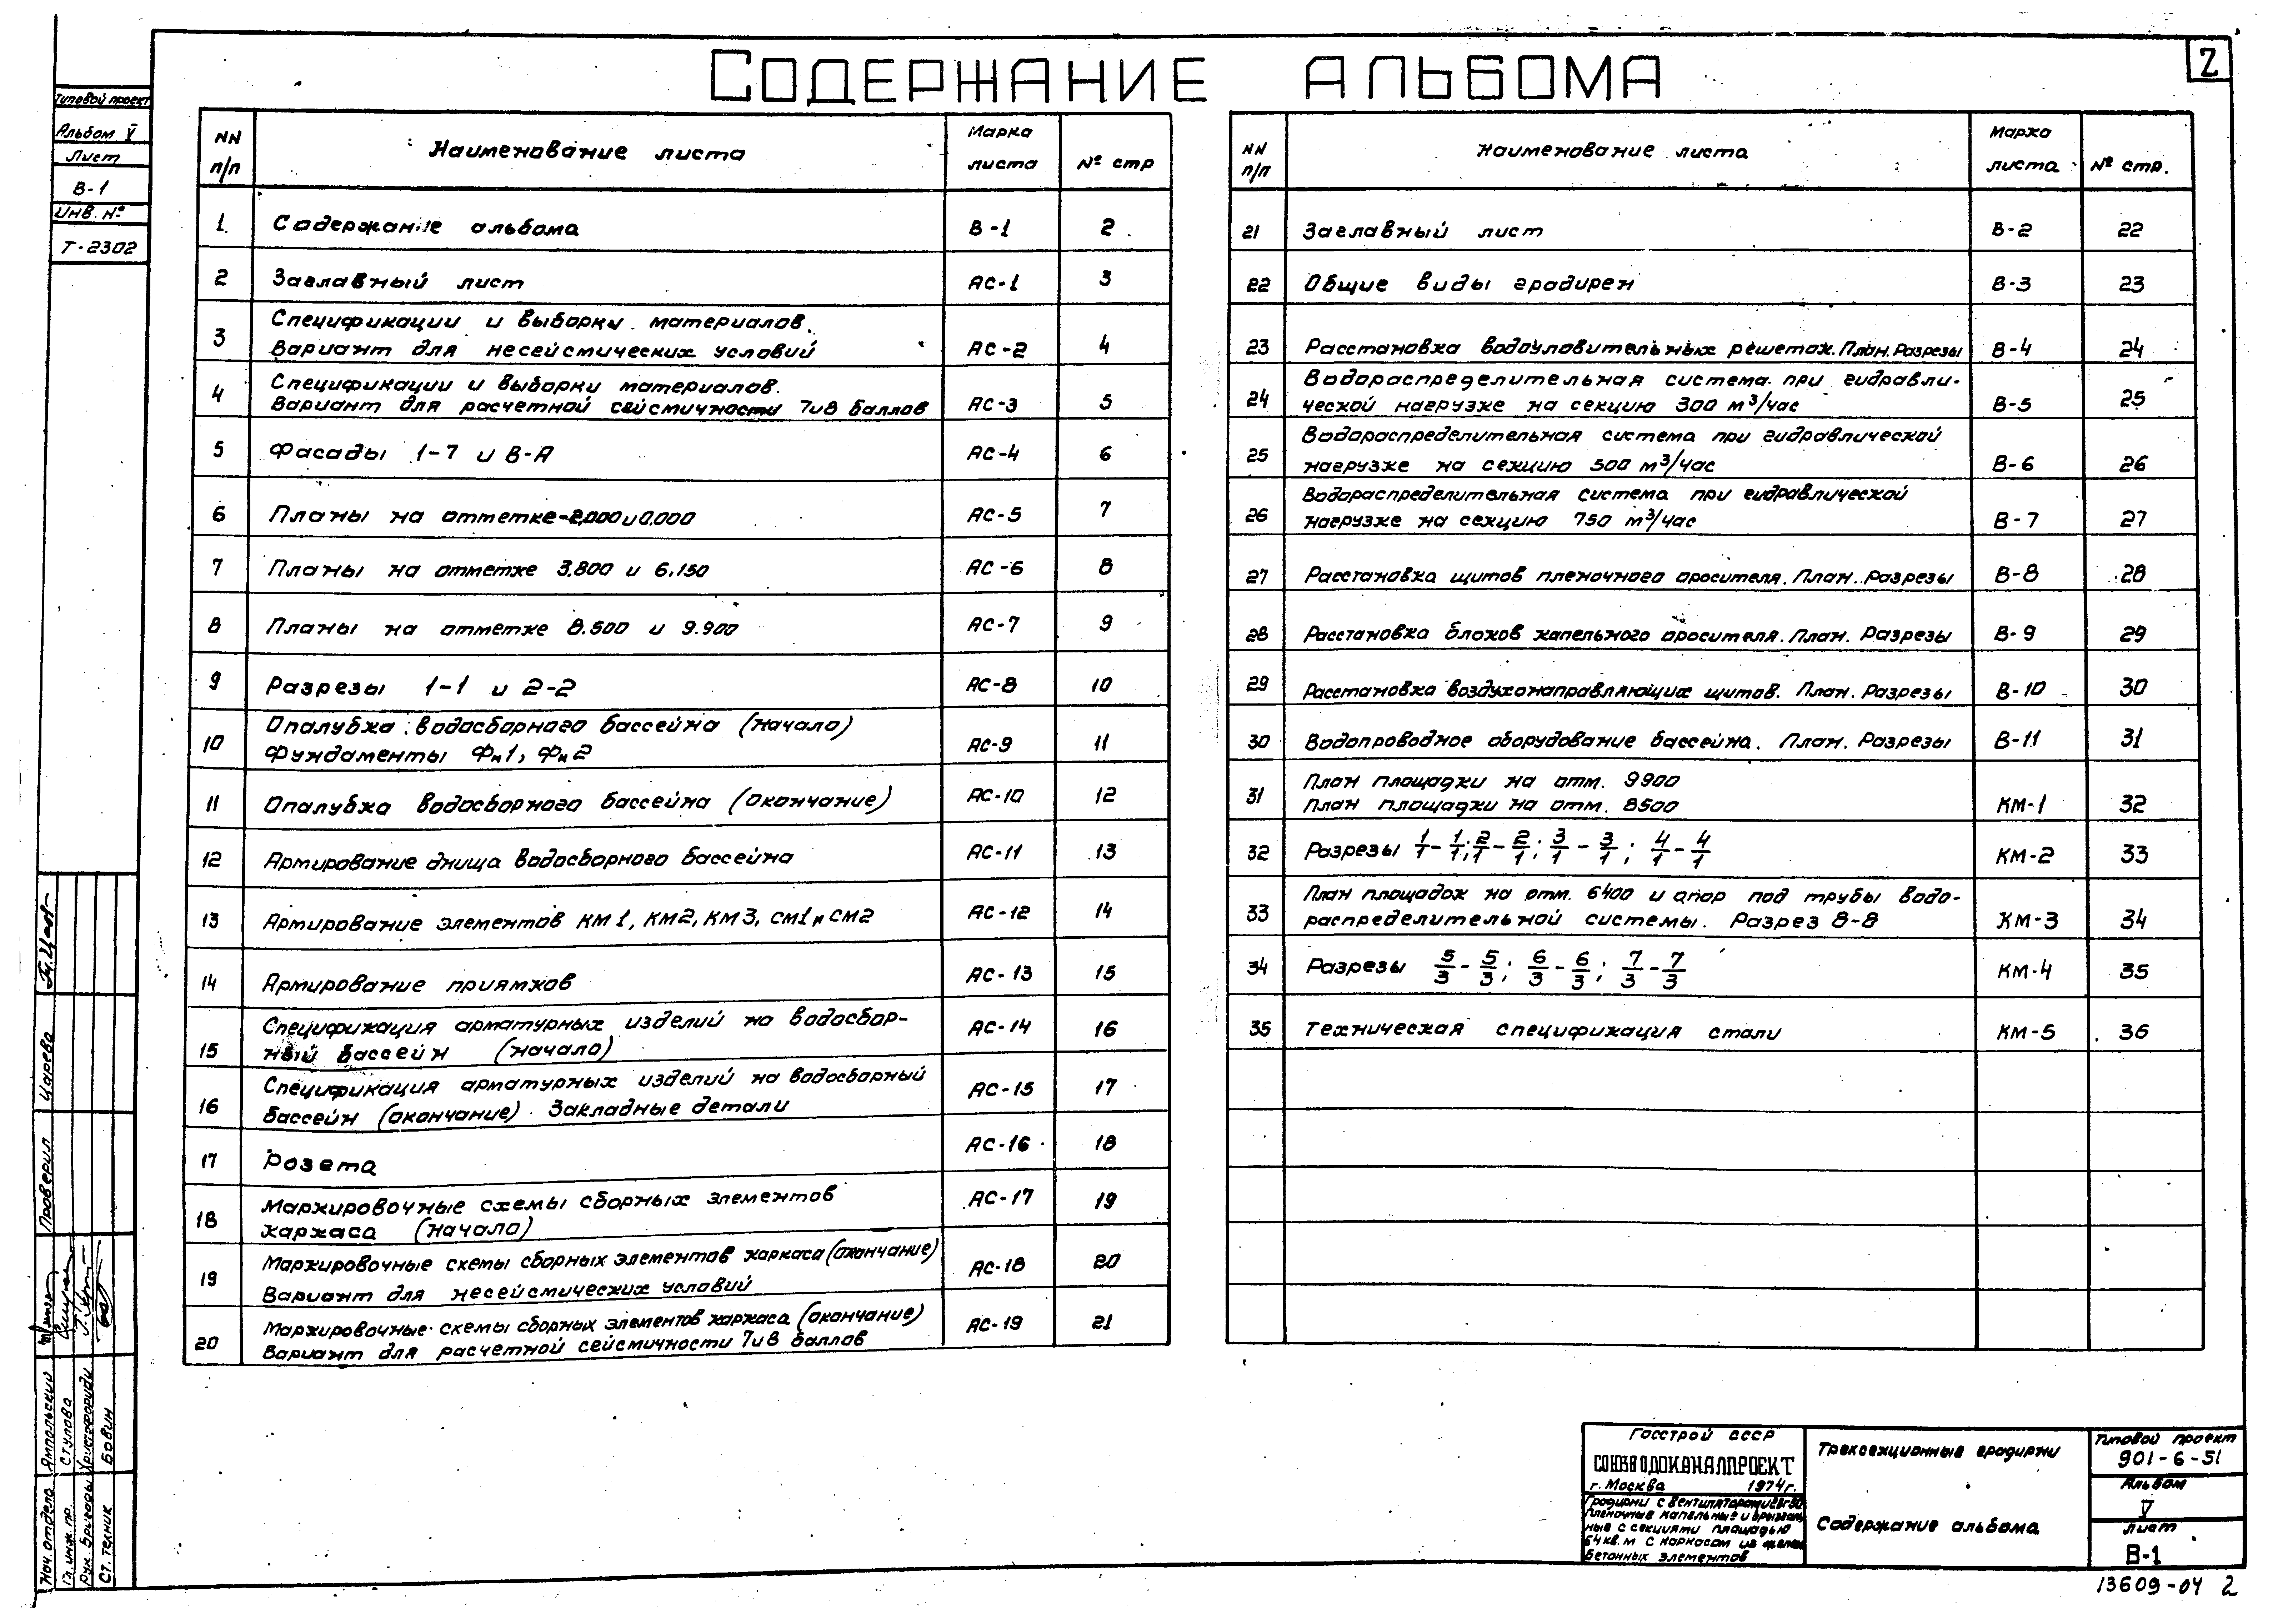 2
СОДЕРЖАНИЕ АЛЬБОМА
Типовой проект
Альбом V
Лист
В-1
Инв. №
Т-2302
NN п/п Наименование листа Марка листа № стр
1. Содержание альбома В-1 2
2 Заглавный лист АС-1 3
3 Спецификации и выборки материалов.
Вариант для несейсмических условий АС-2 4
4 Спецификации и выборки материалов.
Вариант для расчетной сейсмичности 7и8 баллов АС-3 5
5 Фасады 1-7 и В-А АС-4 6
6 Планы на отметке-2,000 и 0.000 АС-5 7
7 Планы на отметке 3.800 и 6.150 АС-6 8
8 Планы на отметке 8.500 и 9.900 АС-7 9
9 Разрезы 1-1 и 2-2 АС-8 10
10 Опалубка водосборного бассейна (начало)
Фундаменты Фм1, Фм2 АС-9 11
11 Опалубка водосборного бассейна (окончание) АС-10 12
12 Армирование днища водосборного бассейна АС-11 13
13 Армирование элементов КМ1, КМ2, КМ3, СМ1 и СМ2 АС-12 14
14 Армирование приямков АС-13 15
15 Спецификация арматурных изделий на водосбор-
ный бассейн (начало) АС-14 16
16 Спецификация арматурных изделий на водосборный
бассейн (окончание) Закладные детали АС-15 17
17 Розета АС-16 18
18 Маркировочные схемы сборных элементов
каркаса (начало) АС-17 19
19 Маркировочные схемы сборных элементов каркаса (окончание)
Вариант для несейсмических условий АС-18 20
20 Маркировочные схемы сборных элементов каркаса (окончание)
Вариант для расчетной сейсмичности 7и8 баллов АС-19 21
NN п/п Наименование листа Марка листа № стр.
21 Заглавный лист В-2 22
22 Общие виды градирен В-3 23
23 Расстановка водоуловительных решеток. План. Разрезы В-4 24
24 Водораспределительная система при гидравли-
ческой нагрузке на секцию 300 м³/час В-5 25
25 Водораспределительная система при гидравлической
нагрузке на секцию 500 м³/час В-6 26
26 Водораспределительная система при гидравлической
нагрузке на секцию 750 м³/час В-7 27
27 Расстановка щитов пленочного оросителя. План. Разрезы В-8 28
28 Расстановка блоков капельного оросителя. План. Разрезы В-9 29
29 Расстановка воздухонаправляющих щитов. План. Разрезы В-10 30
30 Водопроводное оборудование бассейна. План. Разрезы В-11 31
31 План площадки на отм. 9900
План площадки на отм. 8500 КМ-1 32
32 Разрезы 1/1 - 1/1; 2/1 - 2/1; 3/1 - 3/1; 4/1 - 4/1 КМ-2 33
33 План площадок на отм. 6400 и опор под трубы водо-
распределительной системы. Разрез 8-8 КМ-3 34
34 Разрезы 5/3 - 5/3; 6/3 - 6/3; 7/3 - 7/3 КМ-4 35
35 Техническая спецификация стали КМ-5 36
Проверил Царева
Нач. отдела Ямпольский
Гл. инж. пр. Стулова
Рук. бригады Христофориди
Ст. техник Бовин
Госстрой СССР
СОЮЗВОДОКАНАЛПРОЕКТ
г. Москва 1974г.
Градирни с вентиляторами
Пленочные капельные и брызгаль
ные с секциями площадью
64 кв. м с каркасом из желез
бетонных элементов
Трехсекционные градирни
Содержание альбома
Типовой проект
901-6-51
Альбом
V
Лист
В-1
13609-04 2